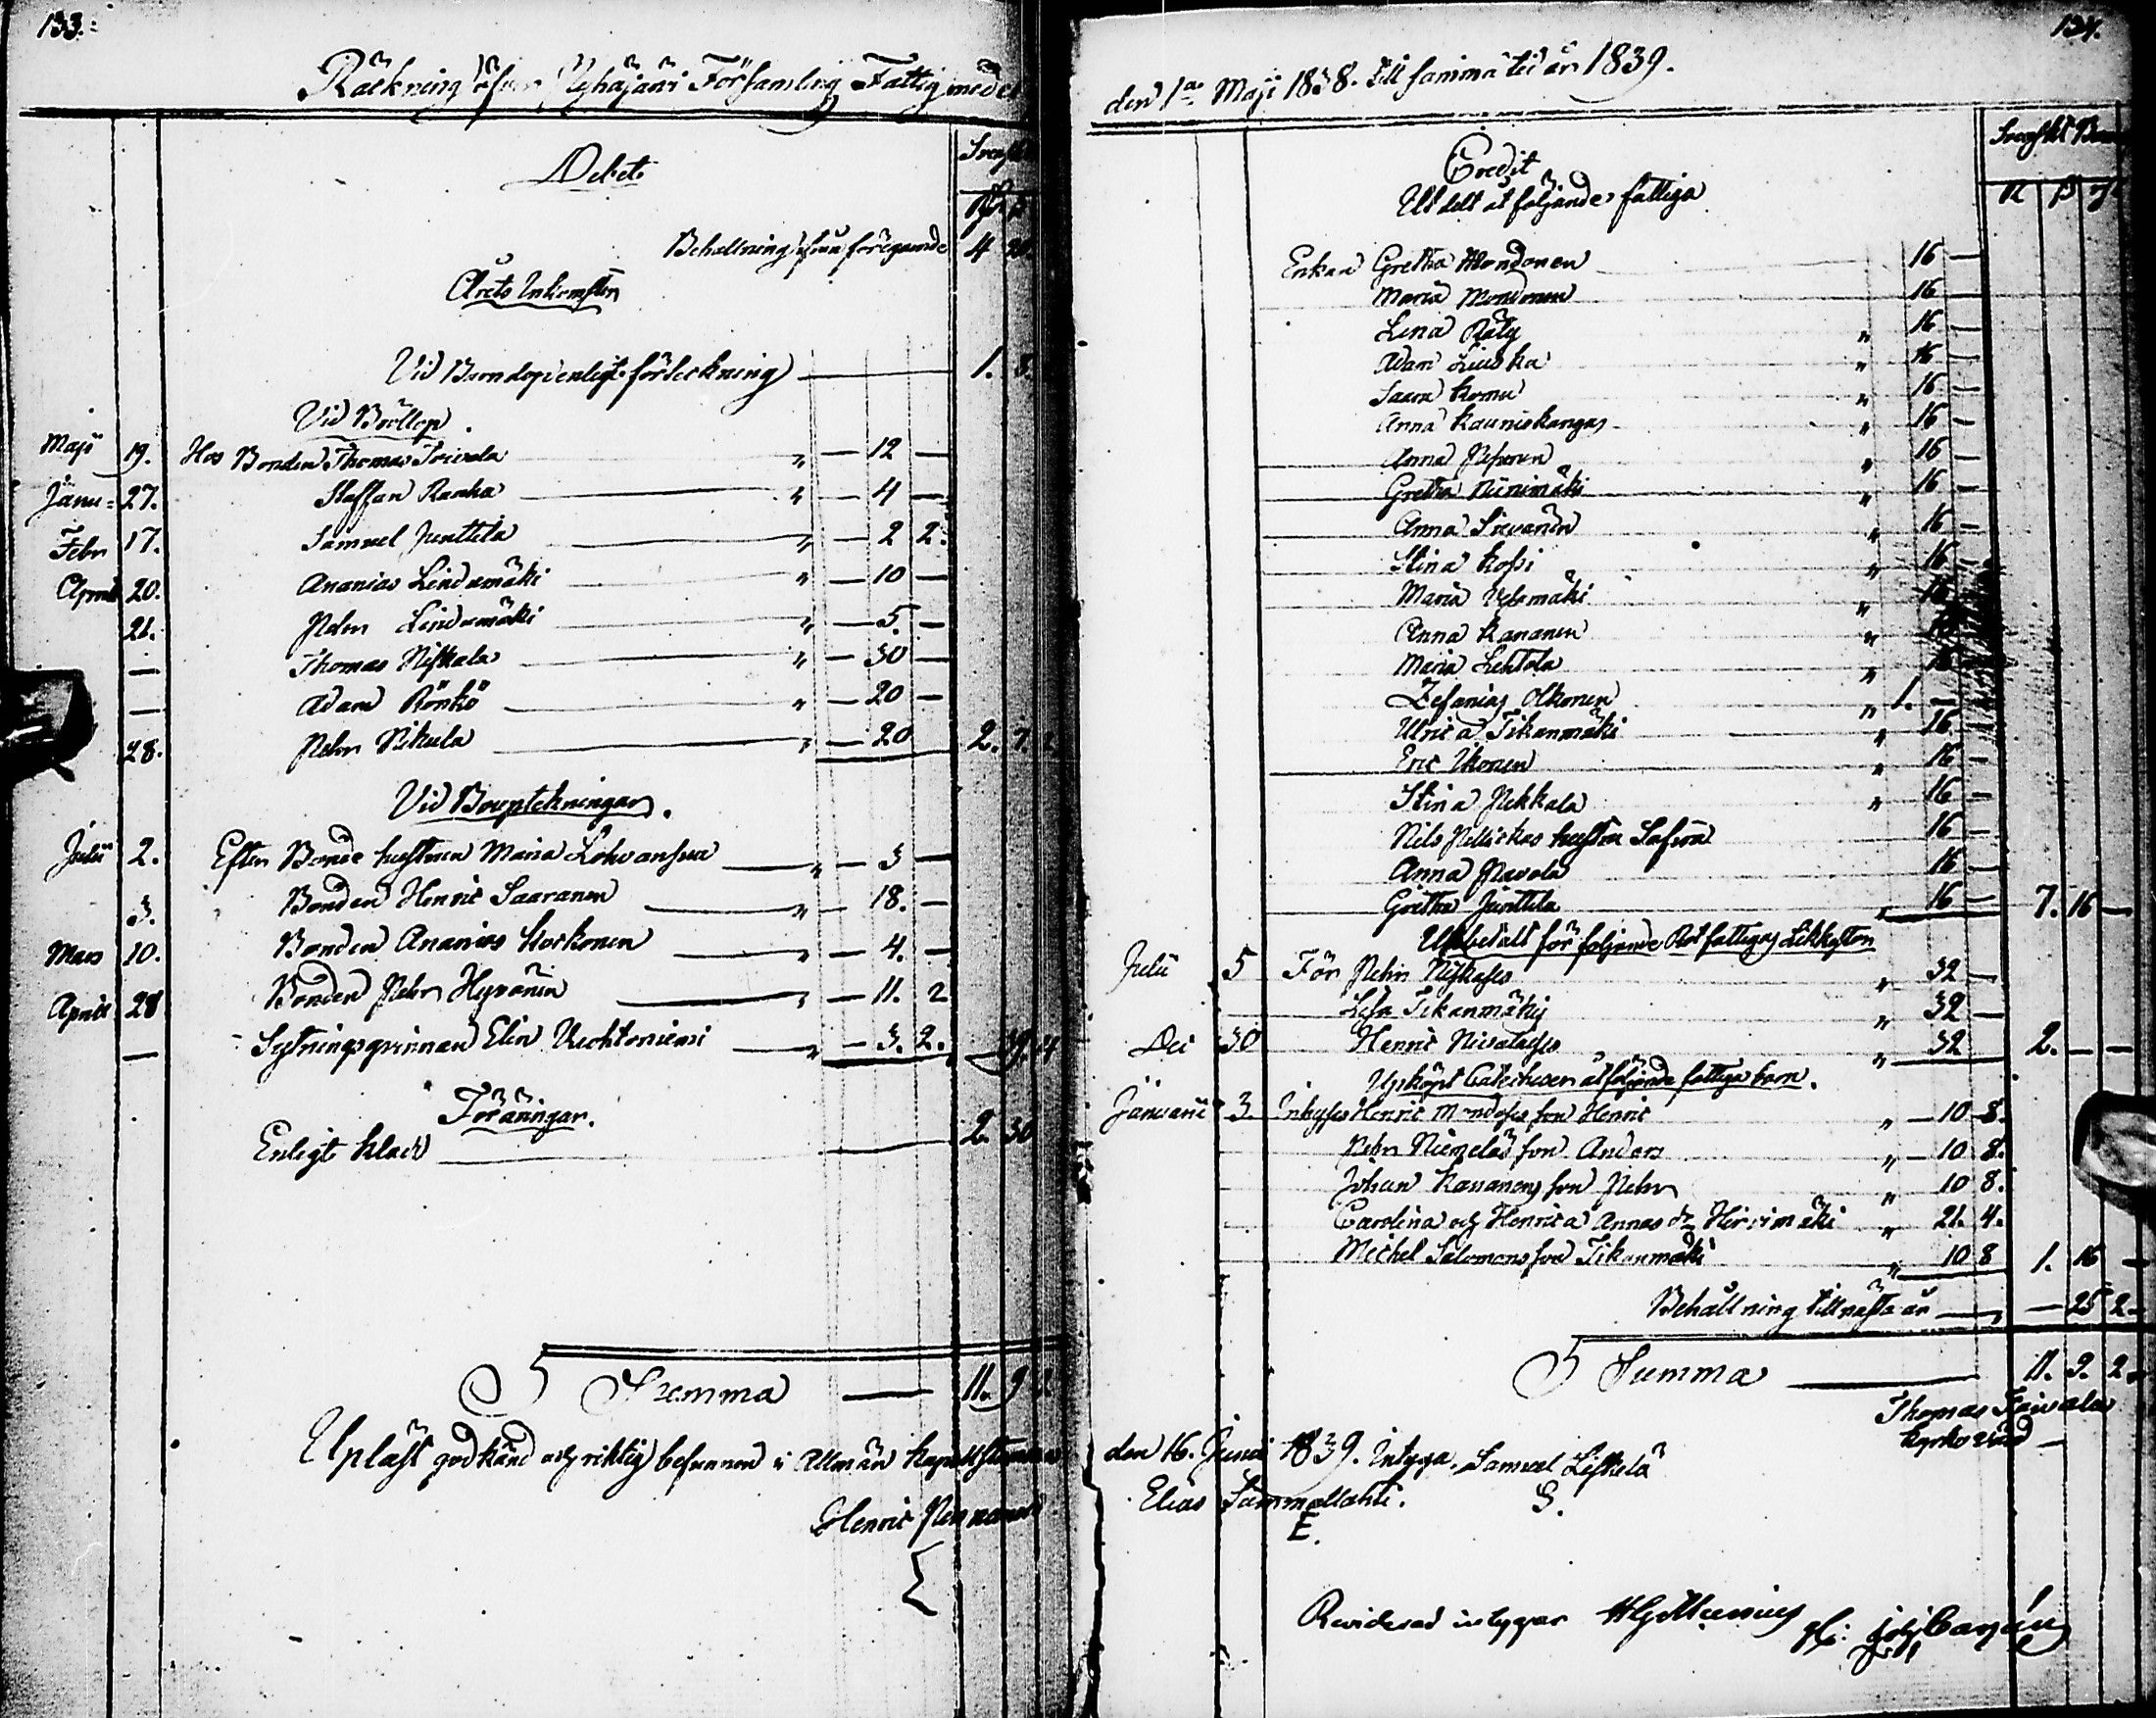 133.
Räkning öfver Pyhäjärvi Församling Fattigmedel
Debet.
Behållning från föregående 4 20.
Årets Inkomster
Vid Barndop enligt förteckning 1. 3.
Vid Bröllop.
Maji 19. Hos Bonden Thomas Toivola " — 12 —
Janu: 27. Staffan Ranka " — 4 —
Febr 17. Samuel Junttila " — 2 2.
April 20. Ananias Lindemäki " — 10 —
21. Pehr Lindemäki " — 5. —
— Thomas Niskala " — 30 —
— Adam Rönkö " — 20 —
28. Pehr Nikula " — 20 2. 7.
Vid Bouptekningar.
Julii 2. Efter Bonde hustrun Maria " — 3 —
3. Bonden Henric Saaranen " — 18. —
Mars 10. Bonden Ananias Korkonen " — 4. —
April 28 Bonden Pehr Hyvönen " — 11. 2
— Sytningsqvinnan Elin " — 3. 2. — 39. 4
Föräringar.
Enligt klad 2. 30
Summa 11. 9
Upläst godkänd och riktig befunnen i Allmän
Henric
134.
den 1a Maji 1838. till samma tid år 1839.
Credit
Utdelt åt följande fattiga
R β
Enkan Gretha Mondonen 16 —
Maria Mondonen 16 —
Lena Räty " 16 —
Adam Liuska " 16 —
Saara Komu " 16 —
Anna Kauniskangas " 16 —
Anna " 16 —
Gretha Niinimäki " 16 —
Anna " 16 —
Stina Kossi " 16 —
Maria " 16
Anna Kananen "
Maria Lehtola " 16
Zefanias Olkonen " 1. —
Ulrica Tikanmäki " 16. —
Eric Ikonen " 16 —
Stina Pekkala " 16 —
Nils hustru 16 —
Anna Pavola 16 —
Gretha Junttila " 16 — 7. 16 —
Utbetalt för följande Rotfattigas Likkistor
Julii 5 För Pehr " 32 —
Lisa Tikanmäkis " 32 —
Dec 30 Henric " 32 2. — —
Upköpt Catecheser åt följande fattiga barn.
Januarii 3. Inhyses Henric son Henric " — 10 8.
Pehr Niemeläs son Anders " — 10 8.
Johan Kananens son Pehr " 10 8.
Carolina och Henrica Annas dr Hirvimäki " 21. 4.
Michel Salomons son Tikanmäki " 10 8 1. 16 —
Behållning till nästa år — 25 2
Summa 11. 9. 2
Thomas Toivola
kyrkovärd
den 16. Junii 1839. Intyga. Samuel
Elias Sammallahti. S.
E.
Reviderad intygar